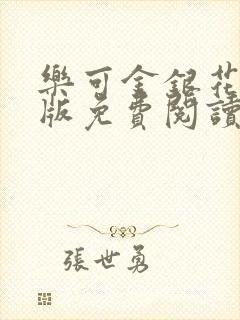 樂可金銀花
版免費閱讀
張世勇